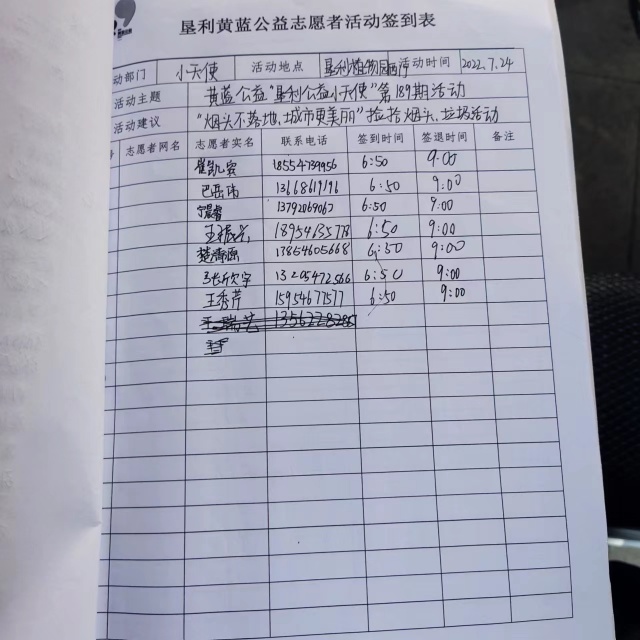 垦利黄蓝公益志愿者活动签到表
动部门 小天使 活动地点 垦利植物园西门 活动时间 2022.7.24
活动主题 黄蓝公益"垦利公益小天使"第189期活动
活动建议 "烟头不落地,城市更美丽"捡拾烟头、垃圾活动
号 志愿者网名 志愿者实名 联系电话 签到时间 签退时间 备注
崔凯宾 18554739956 6:50 9:00
巴岳沛 13668619196 6:50 9:00
宁晨睿 13792069067 6:50 9:00
王振兴 18954635778 6:50 9:00
楚清涵 13854605668 6:50 9:00
张欣宇 13205472566 6:50 9:00
王秀芹 15954677577 6:50 9:00